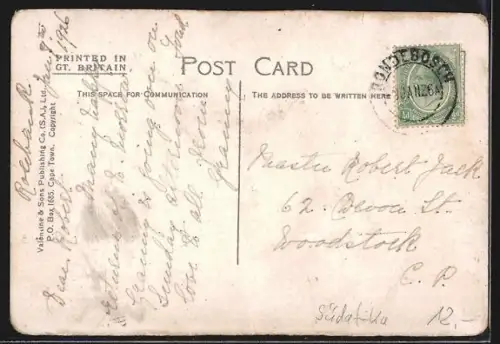 PRINTED IN
GT. BRITAIN.
POST CARD
THIS SPACE FOR COMMUNICATION
THE ADDRESS TO BE WRITTEN HERE
Valentine & Sons Publishing Co. (S.A.), Ltd.
P.O. Box 1685. Cape Town. Copyright
RONDEBOSCH
JAN 26
1926
Dear Robert
Many
leaving & going over on
Sunday afternoon
love to all from
Granny
Master Robert Jack
62. Devon St.
Woodstock
C. P.
Südafrika
12.-